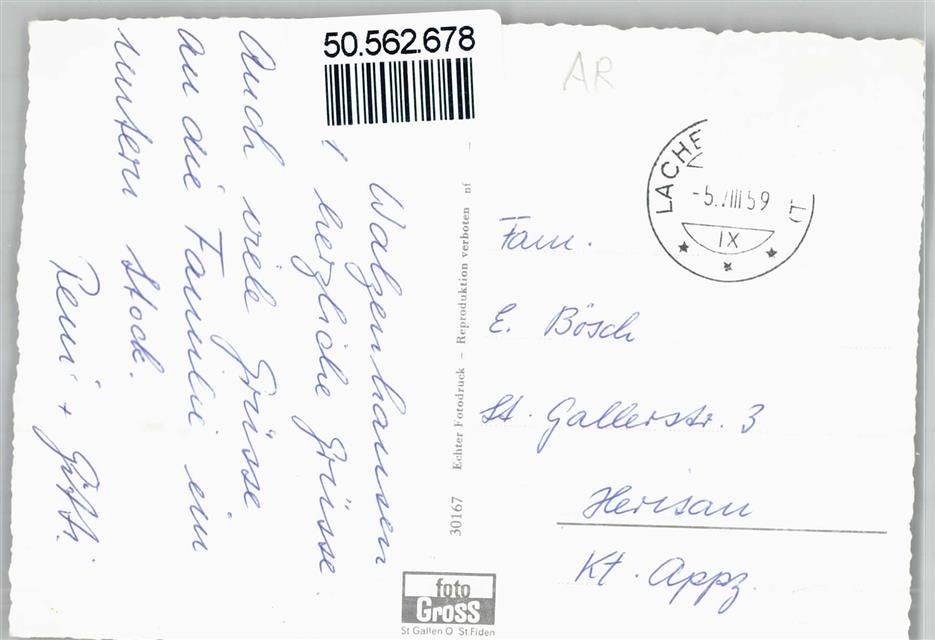 50.562.678
AR
Walzenhausen
! herzliche Grüsse
Auch viele Grüsse
an die Familie im
untern Stock.
+ Götti.
30167 Echter Fotodruck – Reproduktion verboten nf
LACHE
-5.VIII 59
IX
Fam.
E. Bösch
St. Gallerstr. 3
Herisau
Kt. Appz.
foto
Gross
St Gallen O St.Fiden